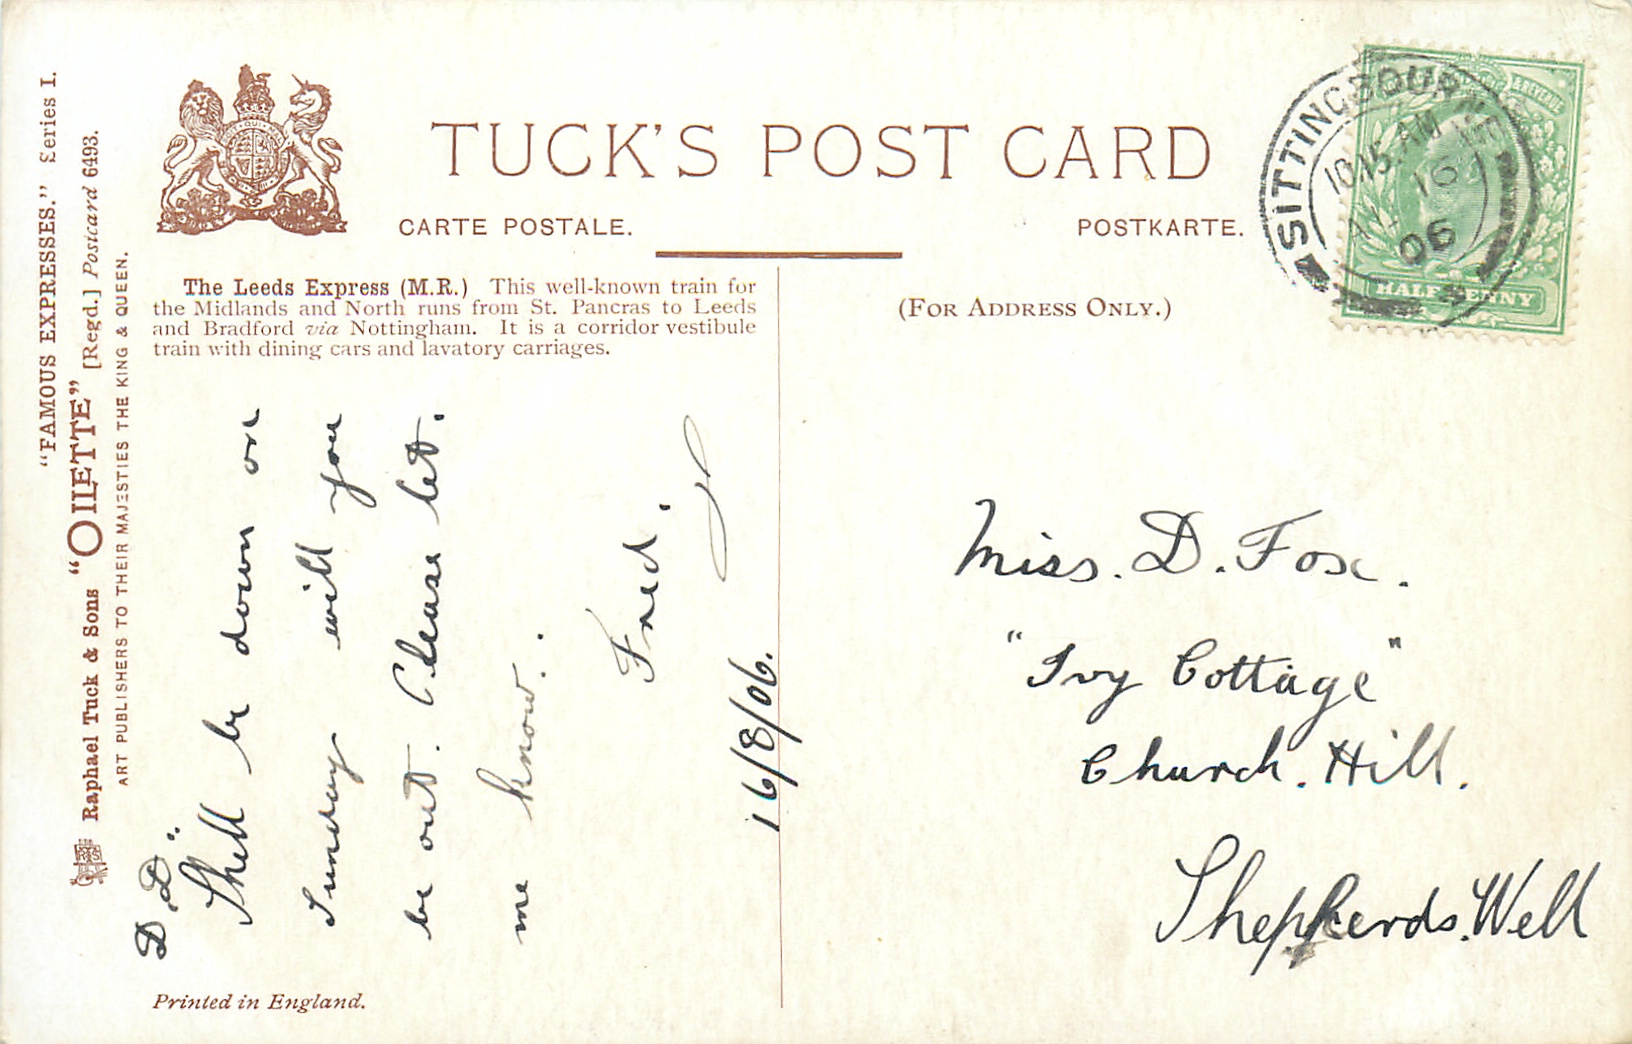 "FAMOUS EXPRESSES." Series I.
Raphael Tuck & Sons "OILETTE" [Regd.] Postcard 6493.
ART PUBLISHERS TO THEIR MAJESTIES THE KING & QUEEN.
TUCK'S POST CARD
CARTE POSTALE. POSTKARTE.
The Leeds Express (M.R.) This well-known train for
the Midlands and North runs from St. Pancras to Leeds
and Bradford via Nottingham. It is a corridor vestibule
train with dining cars and lavatory carriages.
(FOR ADDRESS ONLY.)
SITTINGBOURNE
10.15 AM
16
06
HALFPENNY
D.D.
Shell be down on
Sunday will you
be out. Please let.
me know.
Fred.
16/8/06.
Miss. D. Fox.
"Ivy Cottage"
Church. Hill.
Shepherds. Well
Printed in England.